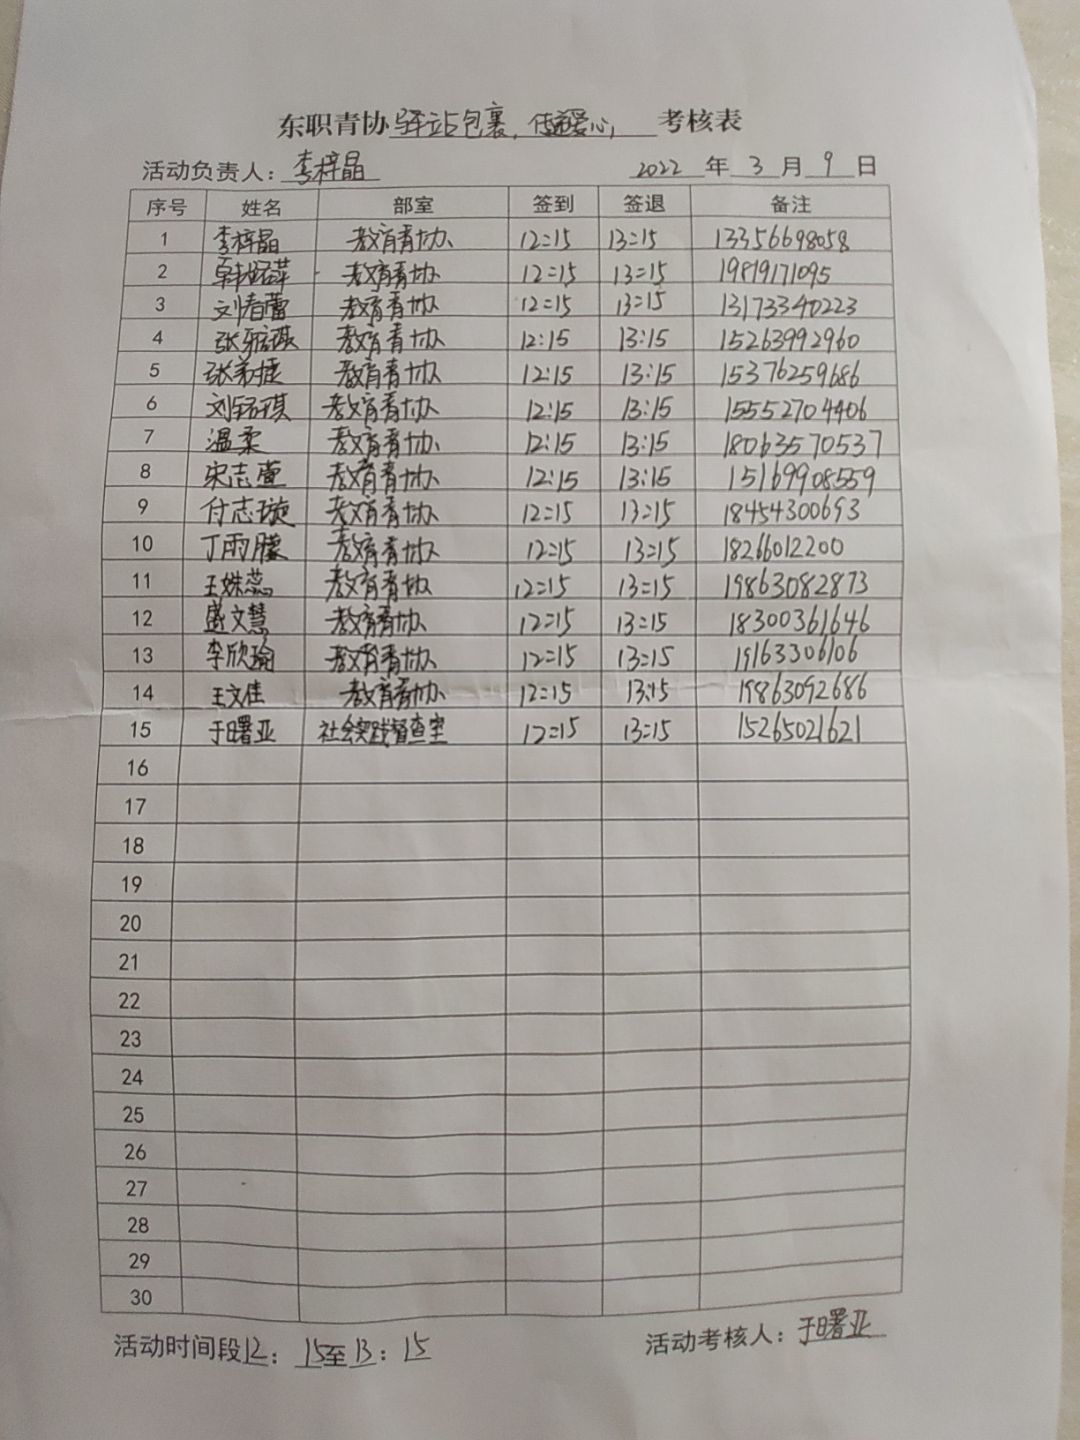 东职青协驿站包裹,传递爱心,考核表
活动负责人:李梓晶 2022年3月9日
序号 姓名 部室 签到 签退 备注
1 李梓晶 教育青协 12:15 13:15 13356698058
2 教育青协 12:15 13:15 19819171095
3 刘春蕾 教育青协 12:15 13:15 13173340223
4 教育青协 12:15 13:15 15263992960
5 教育青协 12:15 13:15 15376259686
6 教育青协 12:15 13:15 15552704406
7 温柔 教育青协 12:15 13:15 18063570537
8 宋志萱 教育青协 12:15 13:15 15169908559
9 付志璇 教育青协 12:15 13:15 18454300693
10 丁雨朦 教育青协 12:15 13:15 18266012200
11 王姝蕊 教育青协 12:15 13:15 19863082873
12 盛文慧 教育青协 12:15 13:15 18300361646
13 李欣瑜 教育青协 12:15 13:15 19163306106
14 王文佳 教育青协 12:15 13:15 19863092686
15 于曙亚 社会实践督查室 12:15 13:15 15265021621
16
17
18
19
20
21
22
23
24
25
26
27
28
29
30
活动时间段12:15至13:15 活动考核人:于曙亚